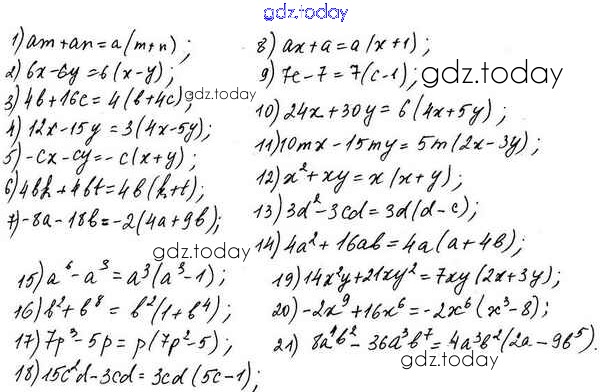 gdz.today
1) am+an=a(m+n);
2) 6x-6y=6(x-y);
3) 4b+16c=4(b+4c);
gdz.today
4) 12x-15y=3(4x-5y);
5) -cx-cy=-c(x+y);
6) 4bk+4bt=4b(k+t);
7) -8a-18b=-2(4a+9b);
8) ax+a=a(x+1);
9) 7c-7=7(c-1);
gdz.today
10) 24x+30y=6(4x+5y);
11) 10mx-15my=5m(2x-3y);
12) x²+xy=x(x+y);
13) 3d²-3cd=3d(d-c);
14) 4a²+16ab=4a(a+4b);
gdz.today
15) a⁶-a³=a³(a³-1);
16) b²+b⁸=b²(1+b⁴);
17) 7p³-5p=p(7p²-5);
18) 15c²d-3cd=3cd(5c-1);
19) 14x²y+21xy²=7xy(2x+3y);
20) -2x⁹+16x⁶=-2x⁶(x³-8);
21) 8a⁴b²-36a³b⁷=4a³b²(2a-9b⁵).
gdz.today